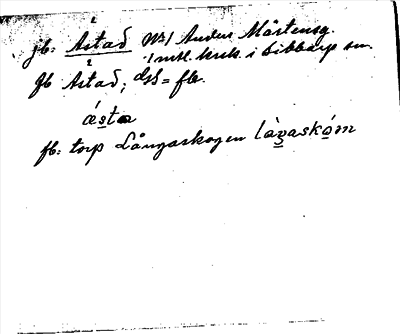 jb: Åstad ms/ Anders Mårtensg.
/ mtl. krh. i Sibbarp sn.
gb Åstad; dsh = flb.
ǽsta
flb: torp Långaskogen làŋaskóm